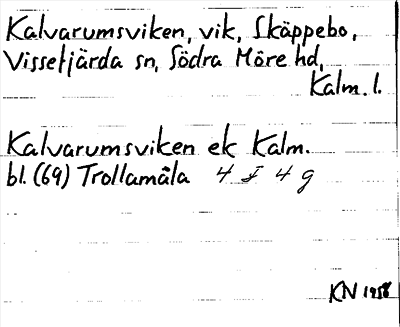 Kalvarumsviken, vik, Skäppebo,
Vissefjärda sn, Södra Möre hd,
Kalm. l.
Kalvarumsviken ek Kalm.
bl. (69) Trollamåla 4 F 4 g
KN 1958